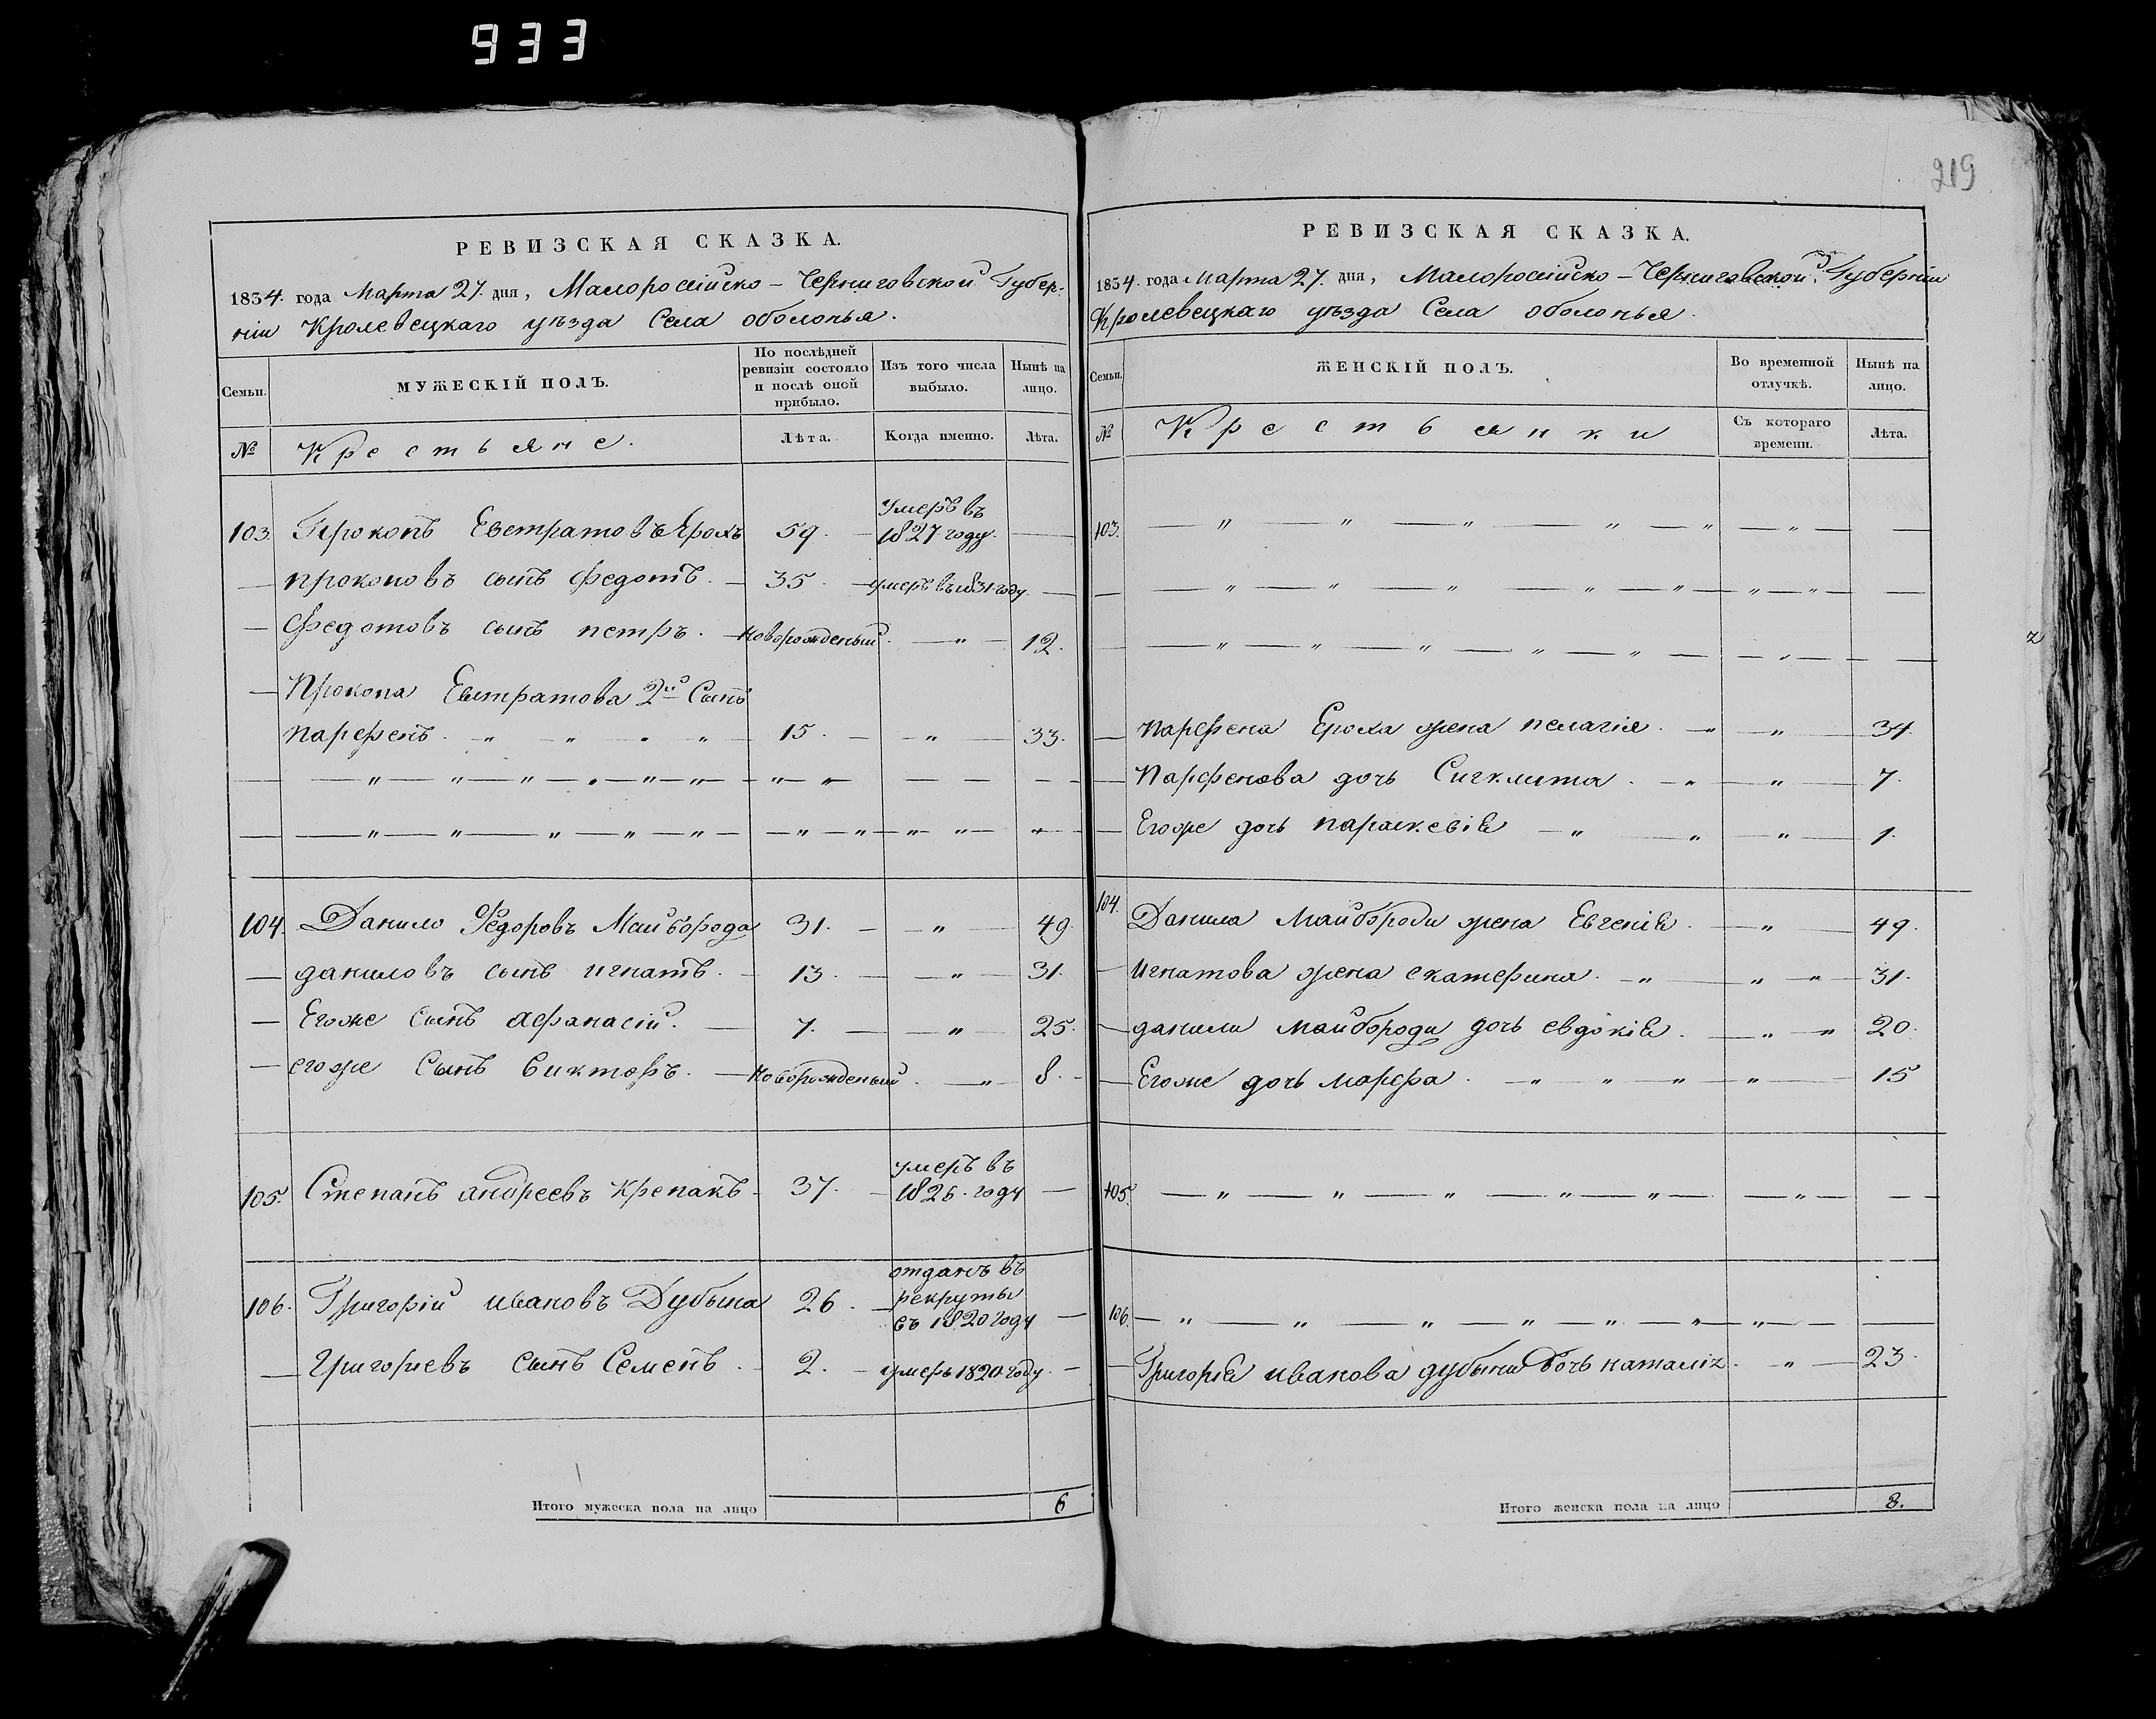 933
219
РЕВИЗСКАЯ СКАЗКА.
1834. года Марта 27. дня, Малоросійско – Черниговской Губер-
ніи Кролевецкаго уѣзда Села оболонья.
Семьи. МУЖЕСКІЙ ПОЛЪ. По послѣдней ревизіи состояло и послѣ оной прибыло. Изъ того числа выбыло. Нынѣ на лицо.
№ Крестьяне. Лѣта. Когда именно. Лѣта.
103. Прокопъ Евстратовъ Ерохъ 59. умеръ въ 1827 году. —
— прокоповъ сынъ федотъ. — 35. — умеръ въ 1831 году. —
— федотовъ сынъ петръ. — новорожденый. — " — 12.
— Прокопа Евстратова 2й Сынъ
парфенъ. " " " " — 15. — " — 33.
— " — " — " — " — " — " — " " — — — —
— " — " — " — " — " — " — " — " — " — " —
104. Данило Федоровъ Майборода 31. — " — 49.
— даниловъ сынъ игнатъ. — 13. — " — 31.
— Егоже сынъ афанасій. — 7. — " — 25.
— егоже сынъ виктеръ. — новорожденый. — " 8. —
105. Степанъ андреевъ крепакъ — 37. — умеръ въ 1826. году —
106. Григорій ивановъ Дубына 26. — отданъ въ рекруты въ 1820 году —
— Григориевъ сынъ Семенъ. — 2. — умеръ 1820 году. —
Итого мужеска пола на лицо 6
РЕВИЗСКАЯ СКАЗКА.
1834. года Марта 27. дня, Малоросійско – Черниговской Губерніи
Кролевецкаго уѣзда Села оболонья.
Семьи. ЖЕНСКІЙ ПОЛЪ. Во временной отлучкѣ. Нынѣ на лицо.
№ Крестьянки Съ котораго времени. Лѣта.
103. — " — " — " — " — " — " — —
— — " — " — " — " — " — " — " — —
— — " — " — " — " — " — " — —
— парфена Ероха жена пелагія. — " — " — 34.
— Парфенова дочь Сигклита. — " — " — 7.
— Егоже дочь параскевія — " — " — " — 1.
104. Данила Майбороди жена Евгенія. — " — 49.
— игнатова жена екатерина. — " — " — " — 31.
— данили майбороди дочь евдокія. — " — " 20.
— Егоже дочь марфа. — " — " — " — " — 15
105. — " — " — " — " — " — " — — —
106. — " — " — " — " — " — " — " — —
— Григорія иванова дубыни дочь наталія. — " — 23.
Итого женска пола на лицо 8.